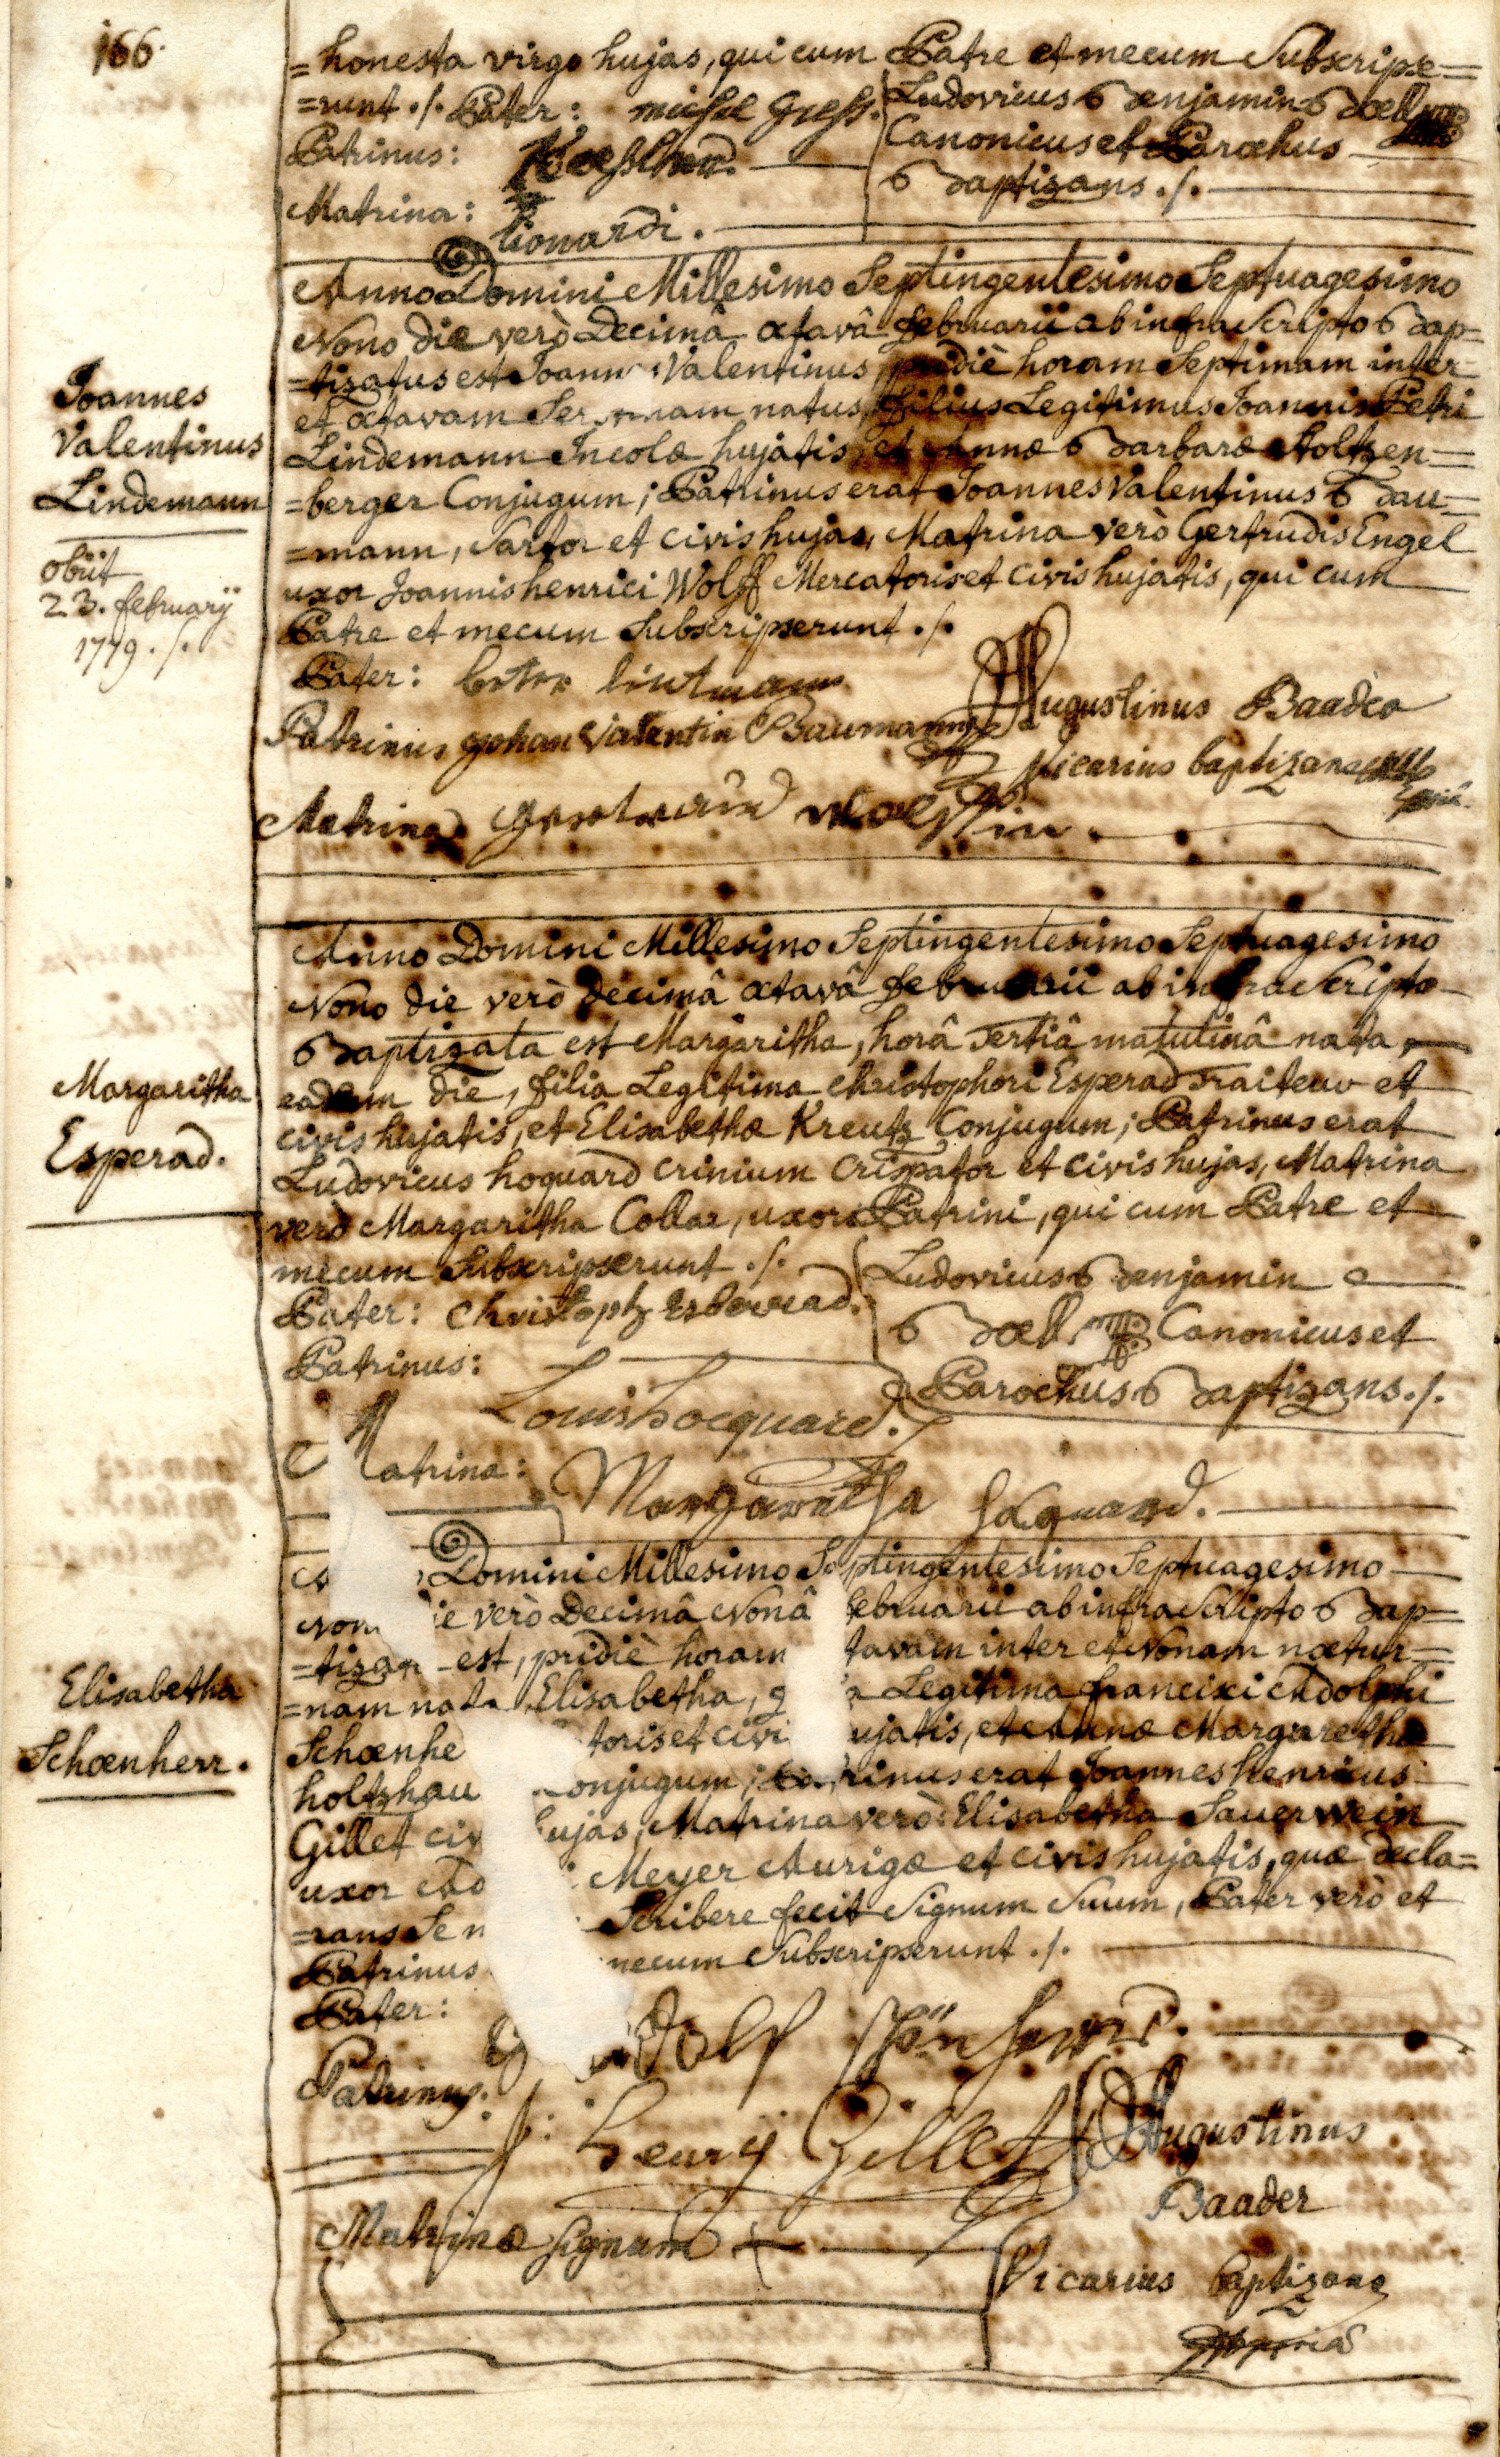 166.
=honesta virgo hujas, qui cum Patre et mecum Subscripse=
=runt ./. Pater: michel
Ludovicus Benjamin Boell
Patrinus:
Canonicus et Parochus
Baptizans ./.
Matrina: Lionardi.
Anno Domini Millesimo Septingentesimo Septuagesimo
Nono die verò Decimâ octavâ februarii ab infra Scripto Bap=
=tizatus est Joann Valentinus, pridiè horam Septimam inter
et octavam natus, filius Legitimus Joannis Petri
Lindemann Incolæ hujatis, et Annæ Barbaræ Holtzen=
=berger Conjugum; Patrinus erat Joannes Valentinus Bau=
=mann, Sartor et civis hujas, Matrina verò Gertrudis Engel
uxor Joannis henrici Wolff Mercatoris et civis hujatis, qui cum
Patre et mecum Subscripserunt ./.
Joannes
Valentinus
Lindemann
obiit
23. february
1779 ./.
Pater: lintmann
Patrinus Johan Valentin Baumann
Augustinus Baader
Vicarius baptizans
Matrina
Anno Domini Millesimo Septingentesimo Septuagesimo
Nono die verò decimâ octavâ februarii ab infra Scripto
Baptizata est Margaritha, horâ Tertiâ matutinâ nata
eadem die, filia Legitima christophori Esperad Traiteur et
civis hujatis, et Elisabethæ Kreutz Conjugum; Patrinus erat
Ludovicus hoquard crinium crispator et civis hujas, Matrina
verò Margaritha Collar, uxor Patrini, qui cum Patre et
mecum Subscripserunt ./.
Margaritha
Esperad.
Pater: Christoph
Ludovicus Benjamin
Boell Canonicus et
Parochus Baptizans ./.
Patrinus:
Louis hocquard.
Matrina: Margaretha hoquard.
Domini Millesimo Septingentesimo Septuagesimo
ie verò Decimâ Nonâ februarii ab infra Scripto Bap=
=tiza est, pridiè horam tavam inter et Nonam noctur=
=nam nata Elisabetha, Legitima francisci Adolphi
Schoenhe toris et civi ujatis, et Annæ Margarethæ
holtzhau onjugum; Patrinus erat Joannes Henricus
Gillet civ ujas, Matrina verò Elisabetha Sauerwein
uxor Ado Meyer Aurigæ et civis hujatis, quæ decla=
=rans Se n Scribere fecit Signum Suum, Pater verò et
Patrinus mecum Subscripserunt ./.
Elisabetha
Schoenherr.
Pater: dolf Schönherr.
Patrinus. J: henry Gillet
Augustinus
Baader
Vicarius baptizans
Matrinæ signum +